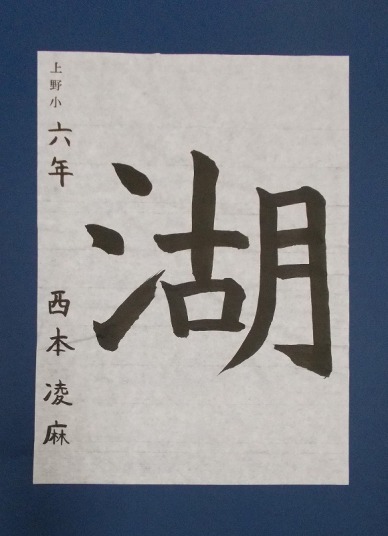 湖
上野小 六年 西本 凌麻